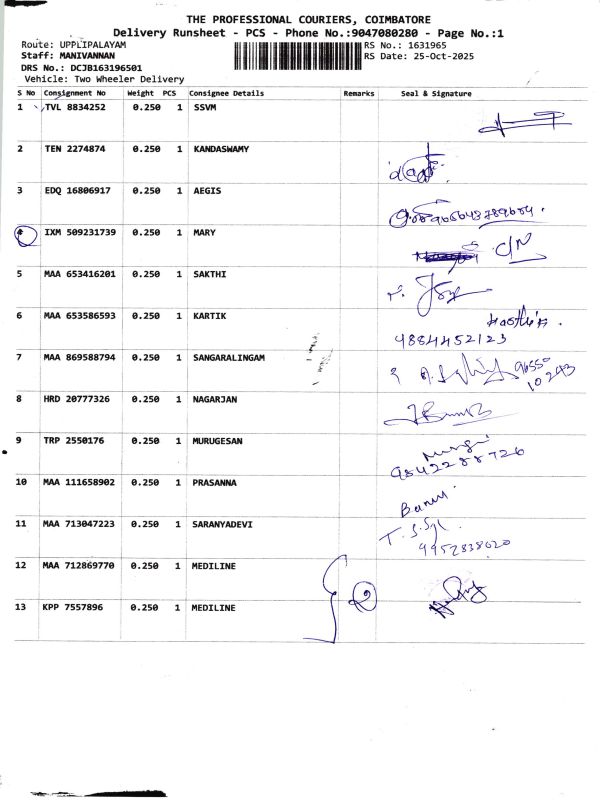 THE PROFESSIONAL COURIERS, COIMBATORE
Delivery Runsheet - PCS - Phone No.:9047080280 - Page No.:1
Route: UPPLIPALAYAM RS No.: 1631965
Staff: MANIVANNAN RS Date: 25-Oct-2025
DRS No.: DCJB163196501
Vehicle: Two Wheeler Delivery
S No Consignment No Weight PCS Consignee Details Remarks Seal & Signature
1 TVL 8834252 0.250 1 SSVM
2 TEN 2274874 0.250 1 KANDASWAMY
3 EDQ 16806917 0.250 1 AEGIS
4 IXM 509231739 0.250 1 MARY C/N
5 MAA 653416201 0.250 1 SAKTHI
6 MAA 653586593 0.250 1 KARTIK
9884452123
7 MAA 869588794 0.250 1 SANGARALINGAM 96550
10243
8 HRD 20777326 0.250 1 NAGARJAN
9 TRP 2550176 0.250 1 MURUGESAN
9842288726
10 MAA 111658902 0.250 1 PRASANNA
Banu.
11 MAA 713047223 0.250 1 SARANYADEVI
9952838020
12 MAA 712869770 0.250 1 MEDILINE
2
13 KPP 7557896 0.250 1 MEDILINE